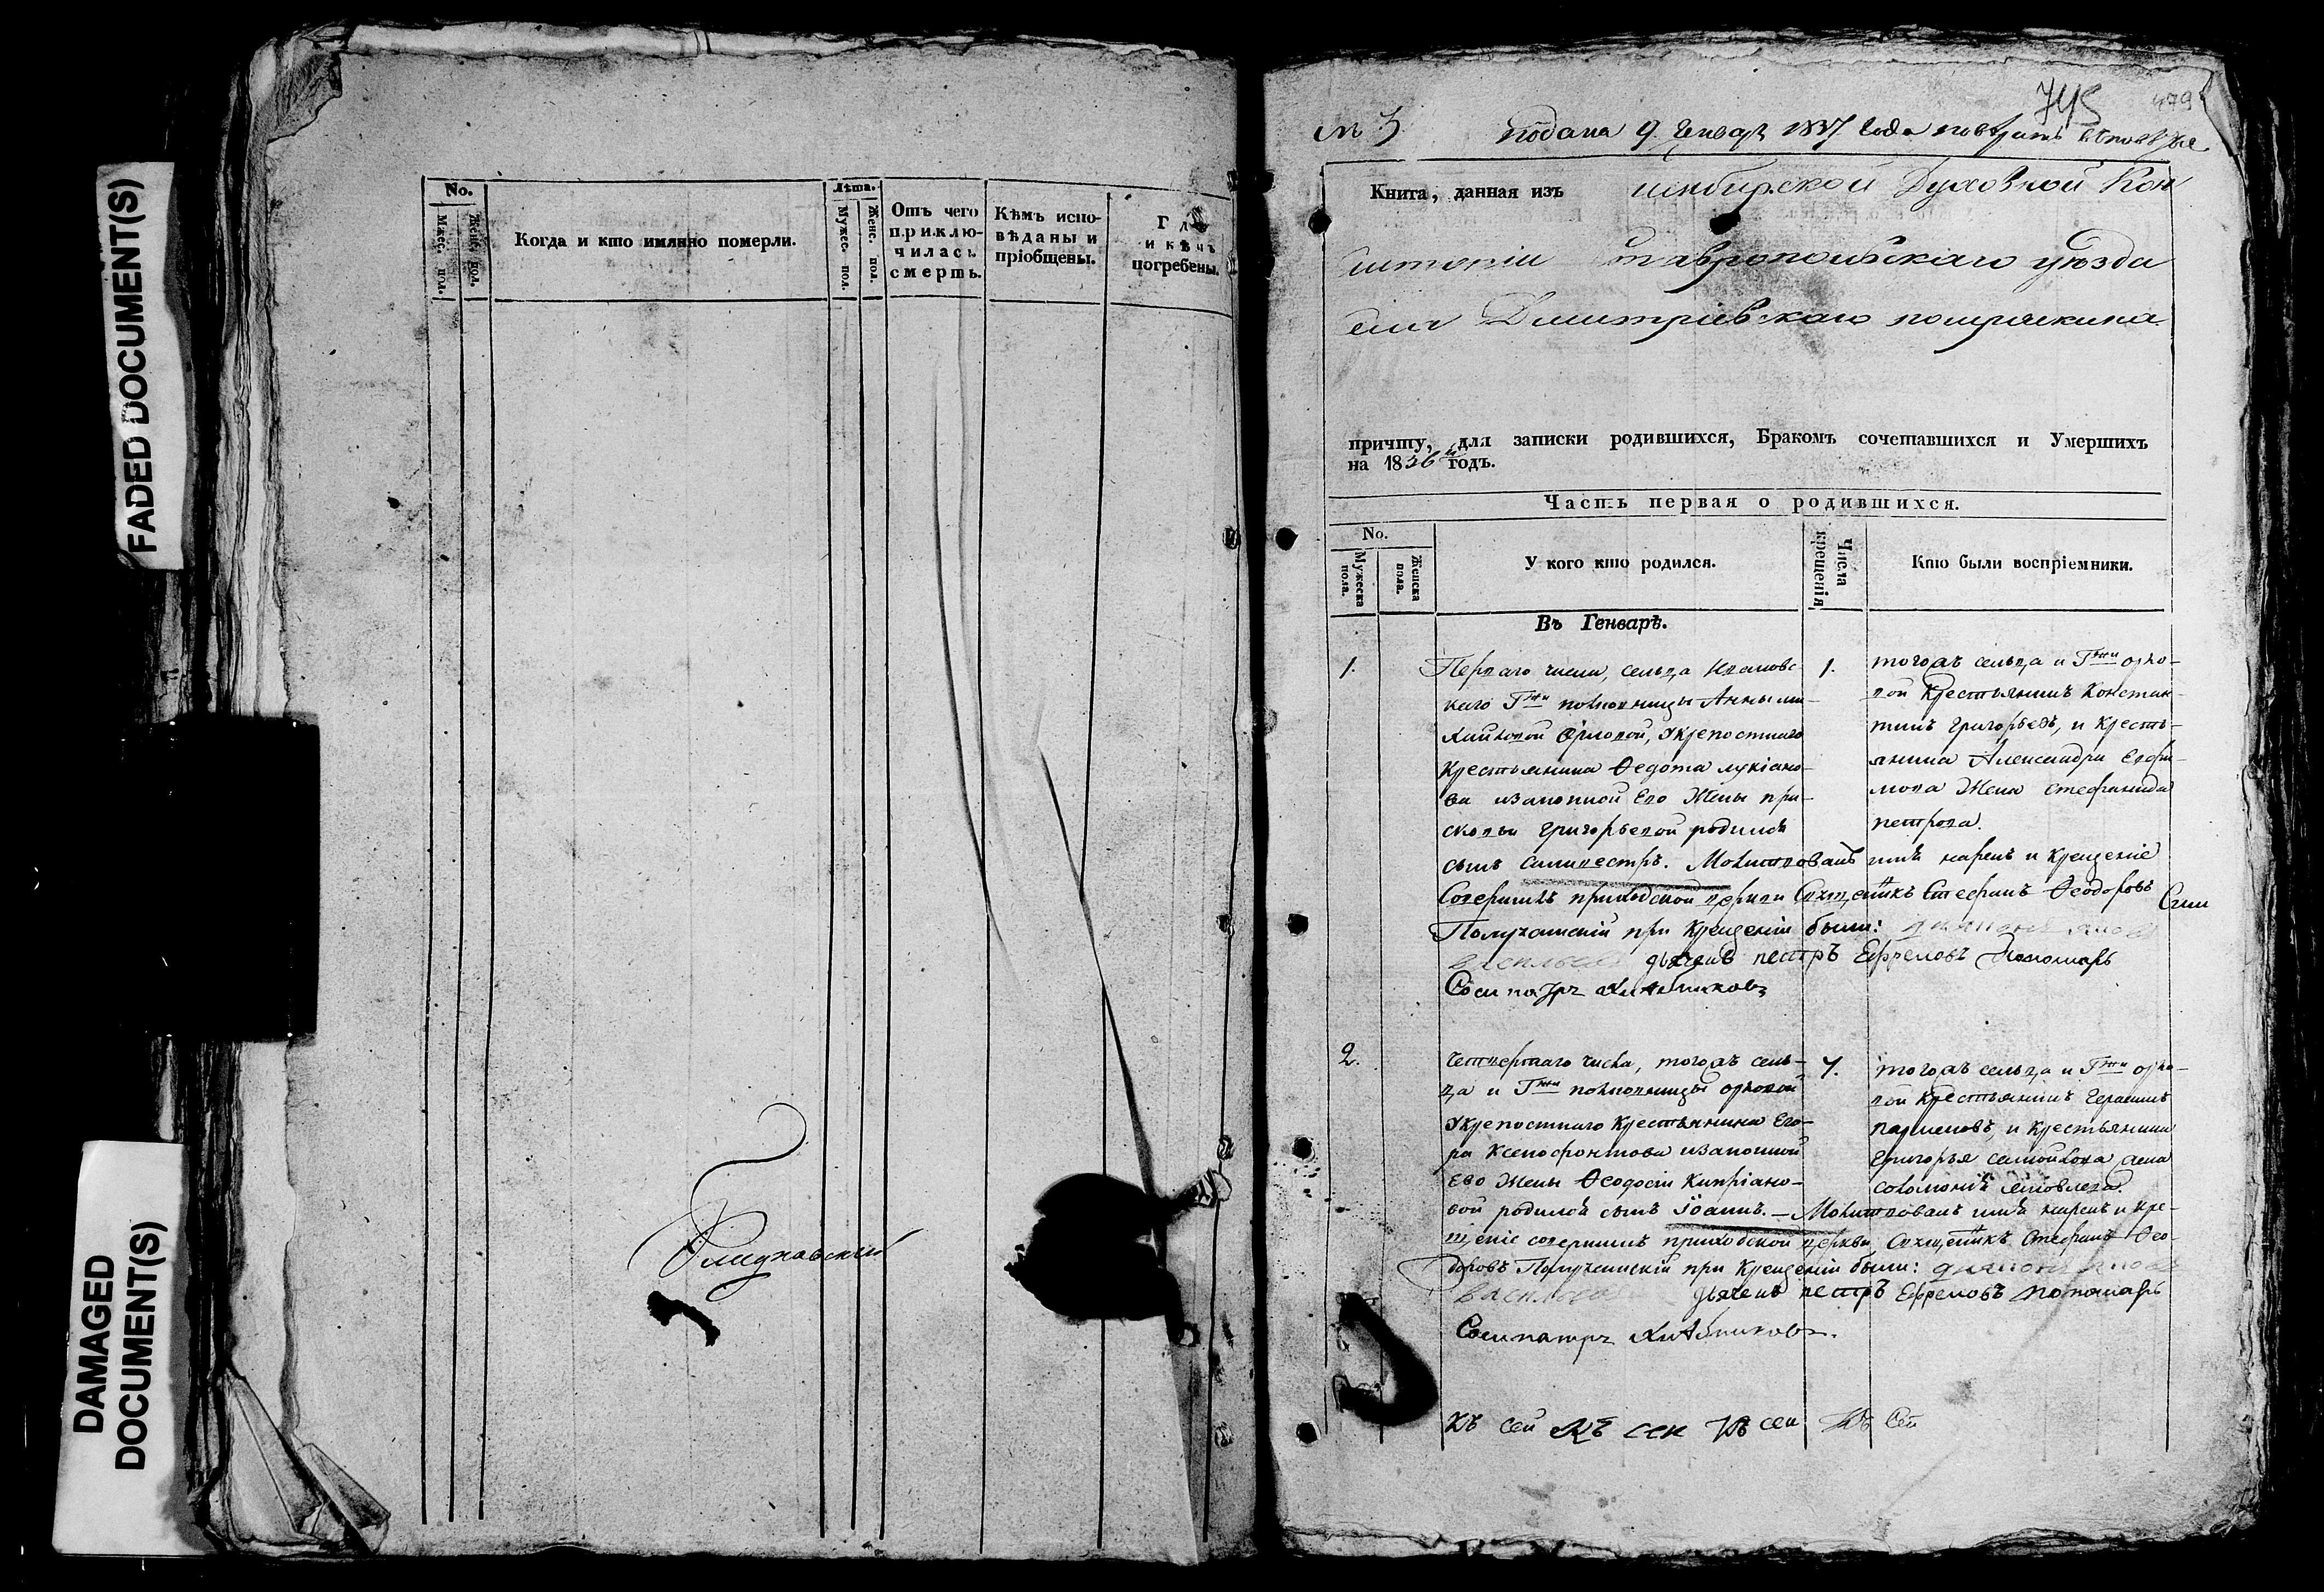 FADED DOCUMENT(S)
DAMAGED DOCUMENT(S)
No.
Мужес. пол.
Женс. пол.
Когда и кто имянно померли.
Лѣта.
Мужес. пол.
Женс. пол.
Отъ чего
приклю-
чилась
смерть.
Кѣмъ испо-
вѣданы и
пріобщены.
и кѣмъ
погребены.
745
479
№ 5 подана 9 Генваря 1837 года
Книга, данная изъ Симбирской Духовной Кон
систоріи Ставропольскаго уѣзда
села Димитріевскаго
причту, для записки родившихся, Бракомъ сочетавшихся и Умершихъ
на 1836й годъ.
Часть первая о родившихся.
No.
Мужеска пола.
Женска пола.
У кого кто родился.
Числа крещенія
Кто были воспріемники.
Въ Генварѣ.
1.
Перваго числа, сельца
каго Гжи полковницы Анны ми-
хайловой Орловой, Укрепостнаго
Крестьянина Ѳедота лукіано-
ва изаконной Его Жены пра-
сковьи Григорьевой родился
сынъ силивестръ. Молитвовалъ имя нарекъ и Крещеніе
Совершилъ приходской церкви Священникъ Стефанъ Ѳеодоровъ
при Крещеніи были:
дьячекъ петръ Ефремовъ Пономарь
Сосипатръ Хлѣбниковъ
1.
тогожъ сельца и Гжи орло-
вой Крестьянинъ Констан-
тинъ Григорьевъ, и Кресть-
янина Александра Ефи-
мова Жена стефанида
петрова.
2.
Четвертаго числа, тогожъ сель-
ца и Гжи полковницы орловой
Укрепостнаго Крестьянина Его-
ра Ксенофонтова изаконной
Его Жены Ѳеодосіи Кипріано-
вой родился сынъ Іоаннъ. — Молитвовалъ имя нарекъ и Кре-
щеніе совершилъ приходской церкви Священникъ Стефанъ Ѳео-
доровъ при Крещеніи были:
дьячекъ петръ Ефремовъ пономарь
Сосипатръ Хлѣбниковъ.
4.
тогожъ сельца и Гжи орло-
вой Крестьянинъ Герасимъ
парменовъ, и Крестьянина
Григорья самойлова жена
соломонія яковлева.
Къ сей Къ сей Къ сей Къ Сей